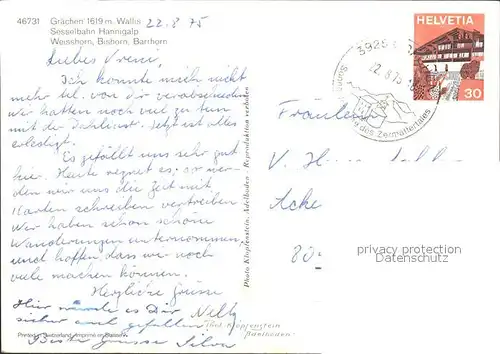 46731 Grächen 1619 m. Wallis 22.8.75
Sesselbahn Hannigalp
Weisshorn, Bishorn, Barrhorn
Liebes Vreni,
Ich konnte mich nicht
mehr tel. von dir verabschieden
wir hatten noch viel zu tun
mit der Jetzt ist alles
erledigt.
Es gefällt uns sehr gut
hier. Heute regnet es, so wer-
den wir uns die Zeit mit
Karten schreiben vertreiben
Wir haben schon schöne
Wanderungen unternommen,
und hoffen, dass wir noch
viele machen können.
Herzliche Grüsse
Nelly
Hier würde es Dir
sicher auch gefallen
Beste Grüsse Silva
Printed in Switzerland Imprimé en Suisse
Photo Klopfenstein, Adelboden - Reproduktion verboten
Phot. Klopfenstein
Adelboden
HELVETIA
30
3925
22.8.75
des Zermattertales
Fräulein
V. H
Acke
80
privacy protection
watermark